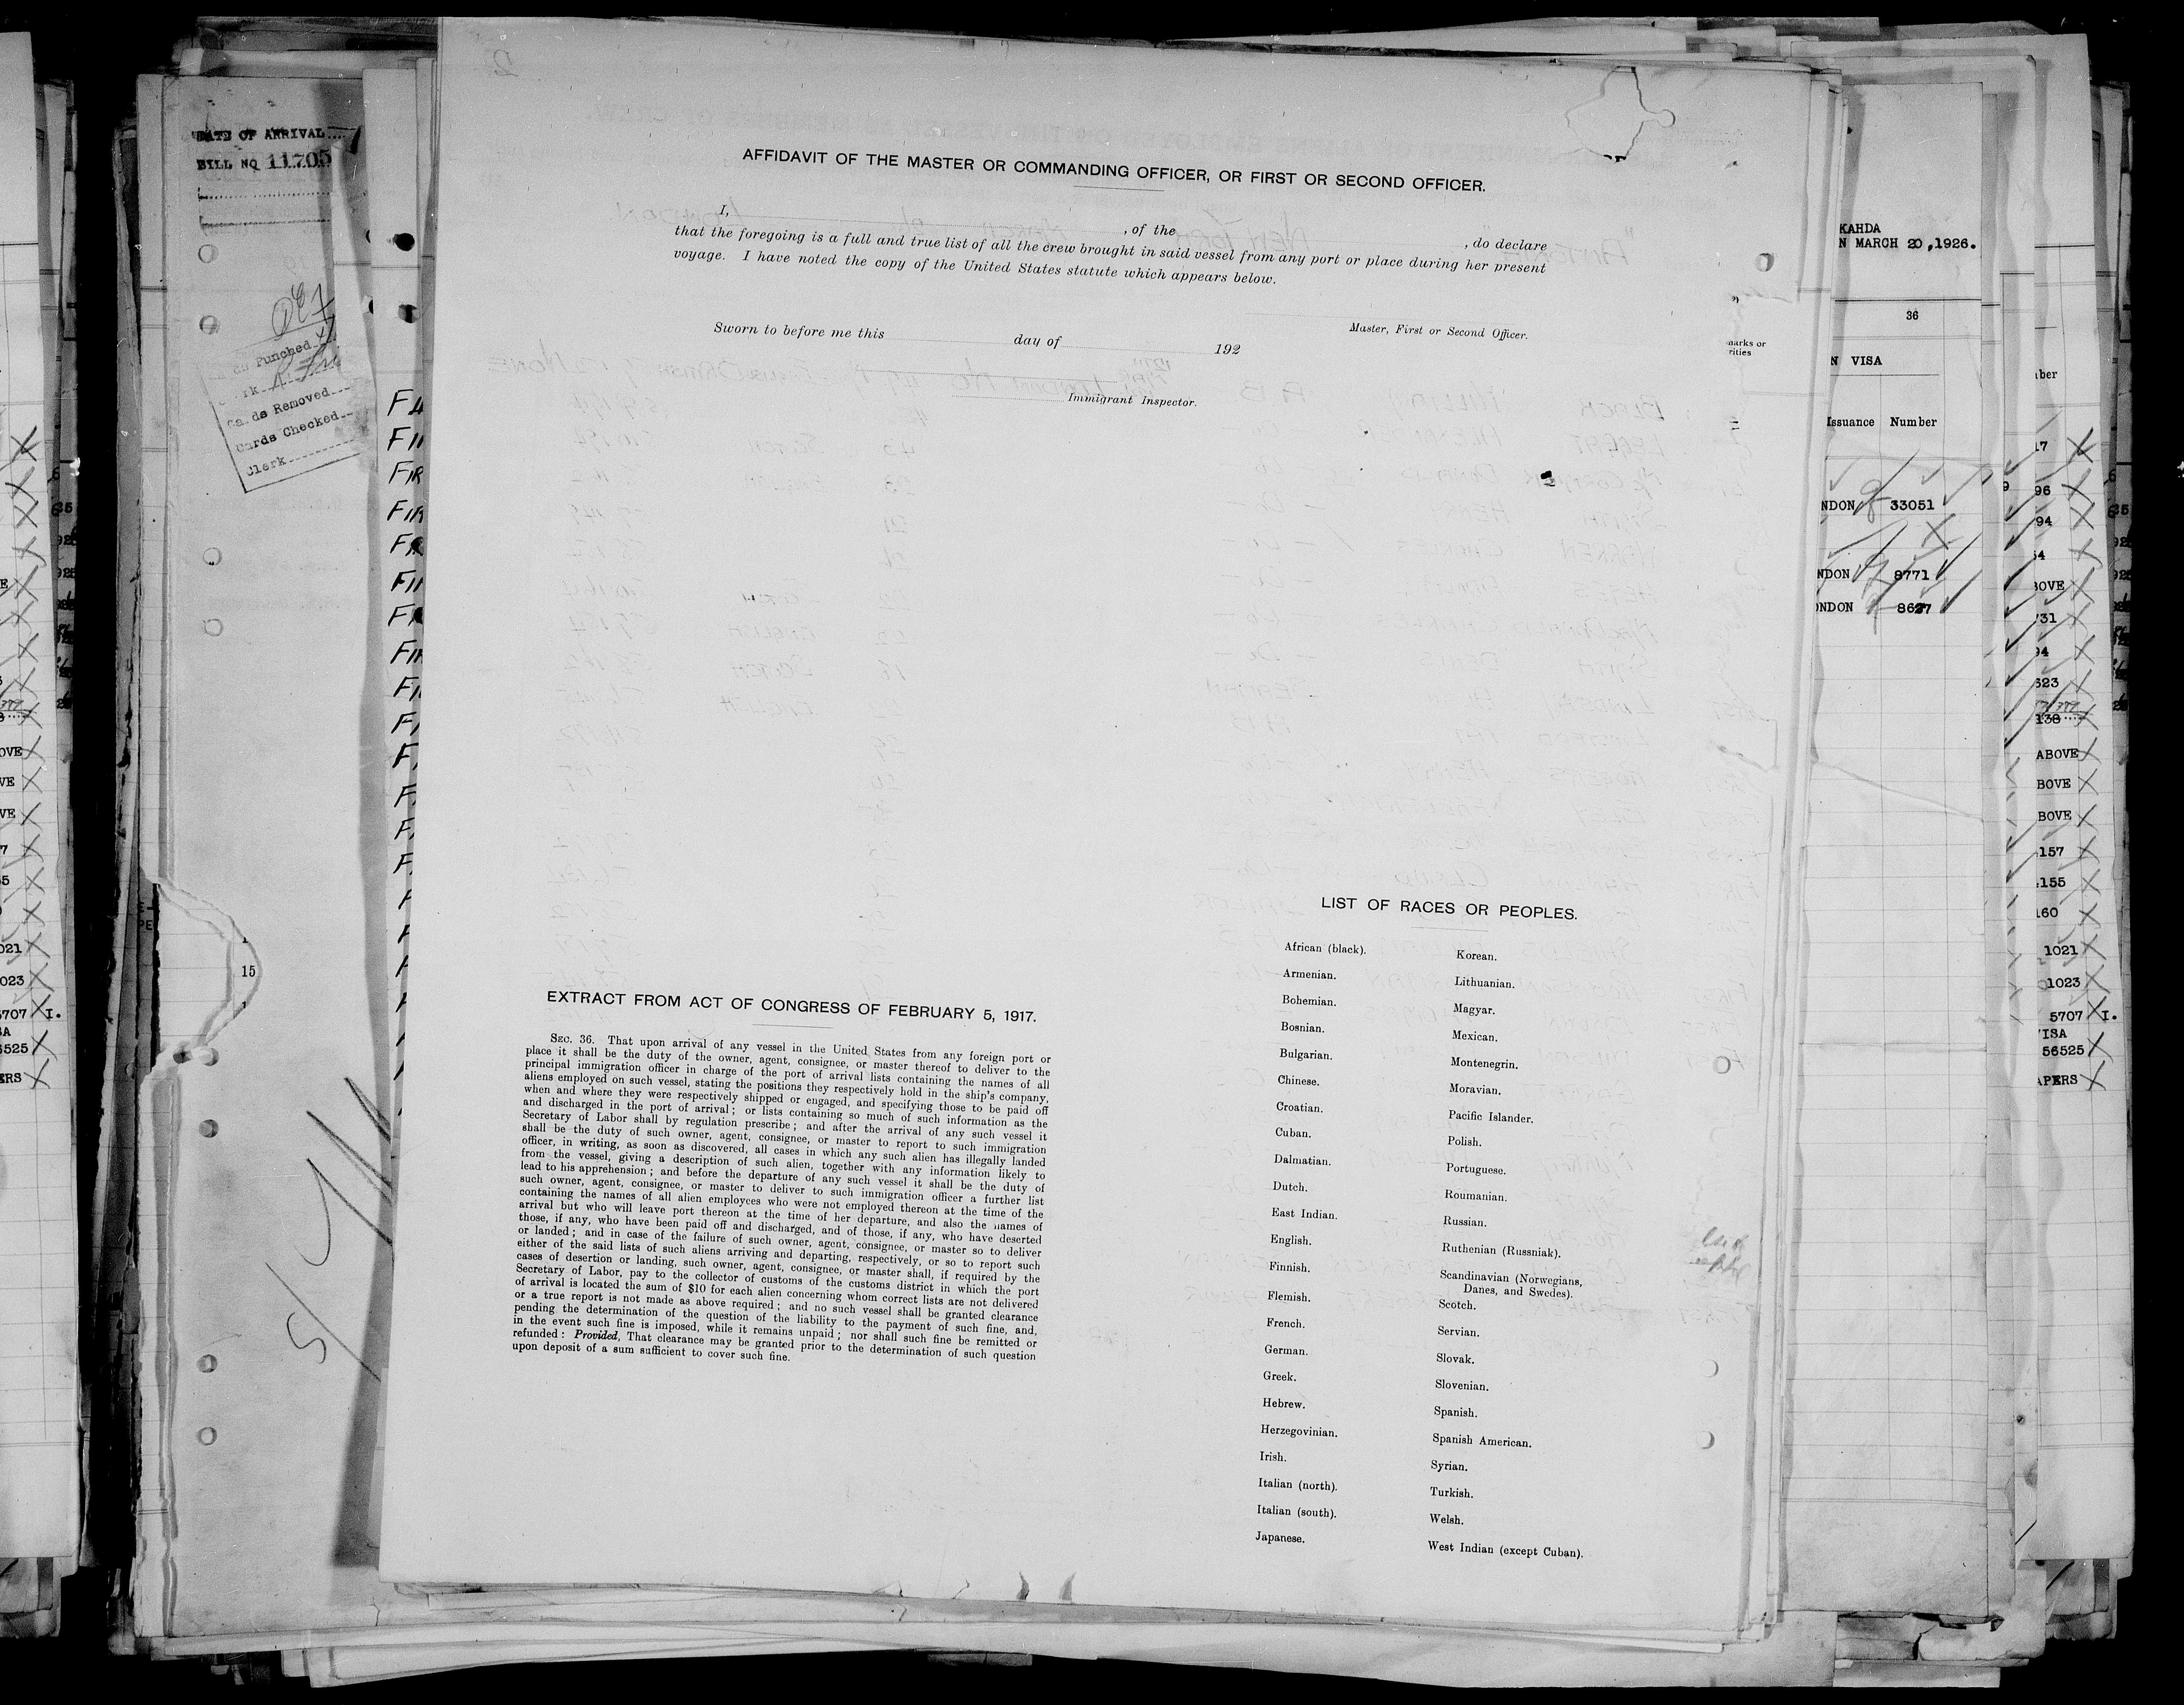 AFFIDAVIT OF THE MASTER OR COMMANDING OFFICER, OR FIRST OR SECOND OFFICER.
I, , of the , do declare
that the foregoing is a full and true list of all the crew brought in said vessel from any port or place during her present
voyage. I have noted the copy of the United States statute which appears below.
Sworn to before me this day of 192
Master, First or Second Officer.
Immigrant Inspector.
EXTRACT FROM ACT OF CONGRESS OF FEBRUARY 5, 1917.
SEC. 36. That upon arrival of any vessel in the United States from any foreign port or
place it shall be the duty of the owner, agent, consignee, or master thereof to deliver to the
principal immigration officer in charge of the port of arrival lists containing the names of all
aliens employed on such vessel, stating the positions they respectively hold in the ship's company,
when and where they were respectively shipped or engaged, and specifying those to be paid off
and discharged in the port of arrival; or lists containing so much of such information as the
Secretary of Labor shall by regulation prescribe; and after the arrival of any such vessel it
shall be the duty of such owner, agent, consignee, or master to report to such immigration
officer, in writing, as soon as discovered, all cases in which any such alien has illegally landed
from the vessel, giving a description of such alien, together with any information likely to
lead to his apprehension; and before the departure of any such vessel it shall be the duty of
such owner, agent, consignee, or master to deliver to such immigration officer a further list
containing the names of all alien employees who were not employed thereon at the time of the
arrival but who will leave port thereon at the time of her departure, and also the names of
those, if any, who have been paid off and discharged, and of those, if any, who have deserted
or landed; and in case of the failure of such owner, agent, consignee, or master so to deliver
either of the said lists of such aliens arriving and departing, respectively, or so to report such
cases of desertion or landing, such owner, agent, consignee, or master shall, if required by the
Secretary of Labor, pay to the collector of customs of the customs district in which the port
of arrival is located the sum of $10 for each alien concerning whom correct lists are not delivered
or a true report is not made as above required; and no such vessel shall be granted clearance
pending the determination of the question of the liability to the payment of such fine, and,
in the event such fine is imposed, while it remains unpaid; nor shall such fine be remitted or
refunded: Provided, That clearance may be granted prior to the determination of such question
upon deposit of a sum sufficient to cover such fine.
LIST OF RACES OR PEOPLES.
African (black).
Armenian.
Bohemian.
Bosnian.
Bulgarian.
Chinese.
Croatian.
Cuban.
Dalmatian.
Dutch.
East Indian.
English.
Finnish.
Flemish.
French.
German.
Greek.
Hebrew.
Herzegovinian.
Irish.
Italian (north).
Italian (south).
Japanese.
Korean.
Lithuanian.
Magyar.
Mexican.
Montenegrin.
Moravian.
Pacific Islander.
Polish.
Portuguese.
Roumanian.
Russian.
Ruthenian (Russniak).
Scandinavian (Norwegians,
Danes, and Swedes).
Scotch.
Servian.
Slovak.
Slovenian.
Spanish.
Spanish American.
Syrian.
Turkish.
Welsh.
West Indian (except Cuban).
DATE OF ARRIVAL
BILL NO 11705
Punched
Cards Removed
Cards Checked
Clerk
15
KAHDA
N MARCH 20, 1926.
36
N VISA
Issuance Number
NDON 33051
NDON 8771
ONDON 8627
ABOVE
BOVE
BOVE
157
155
160
1021
1023
5707 I.
56525